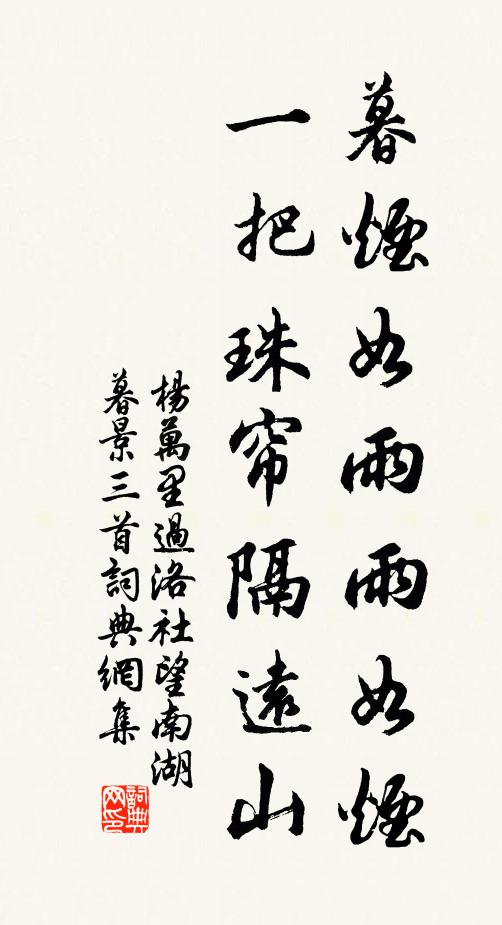 暮煙如雨雨如煙
一把珠帘隔遠山
楊萬里過洛社望南湖
暮景三首詞典網集
詞典網印